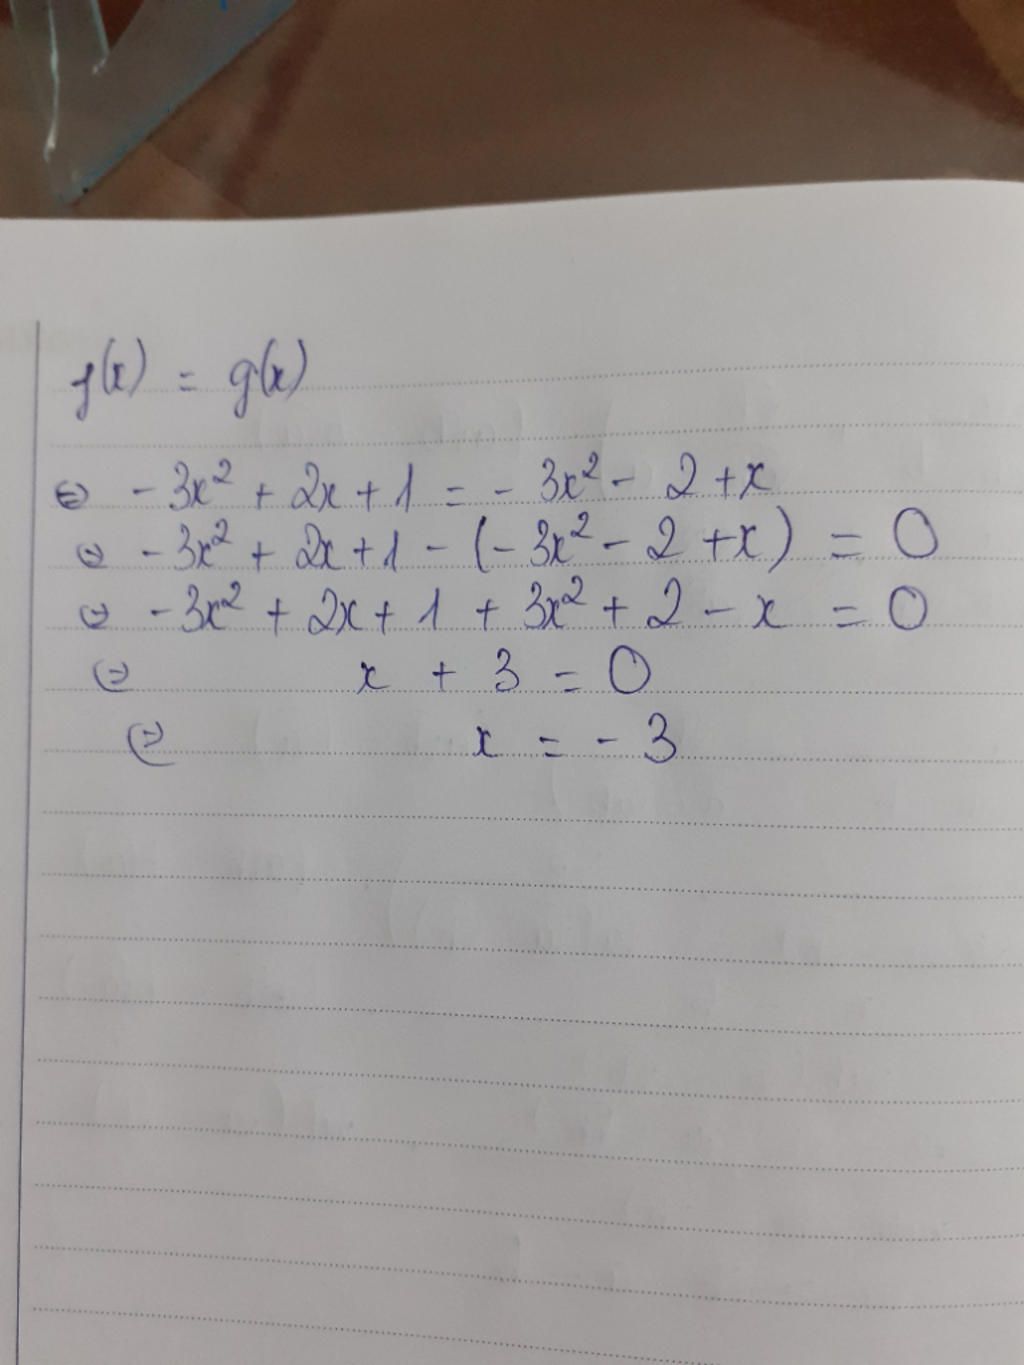 f(x) = g(x)
⇔ - 3x² + 2x + 1 = - 3x² - 2 + x
⇔ - 3x² + 2x + 1 - (- 3x² - 2 + x) = 0
⇔ - 3x² + 2x + 1 + 3x² + 2 - x = 0
⇔ x + 3 = 0
⇔ x = - 3